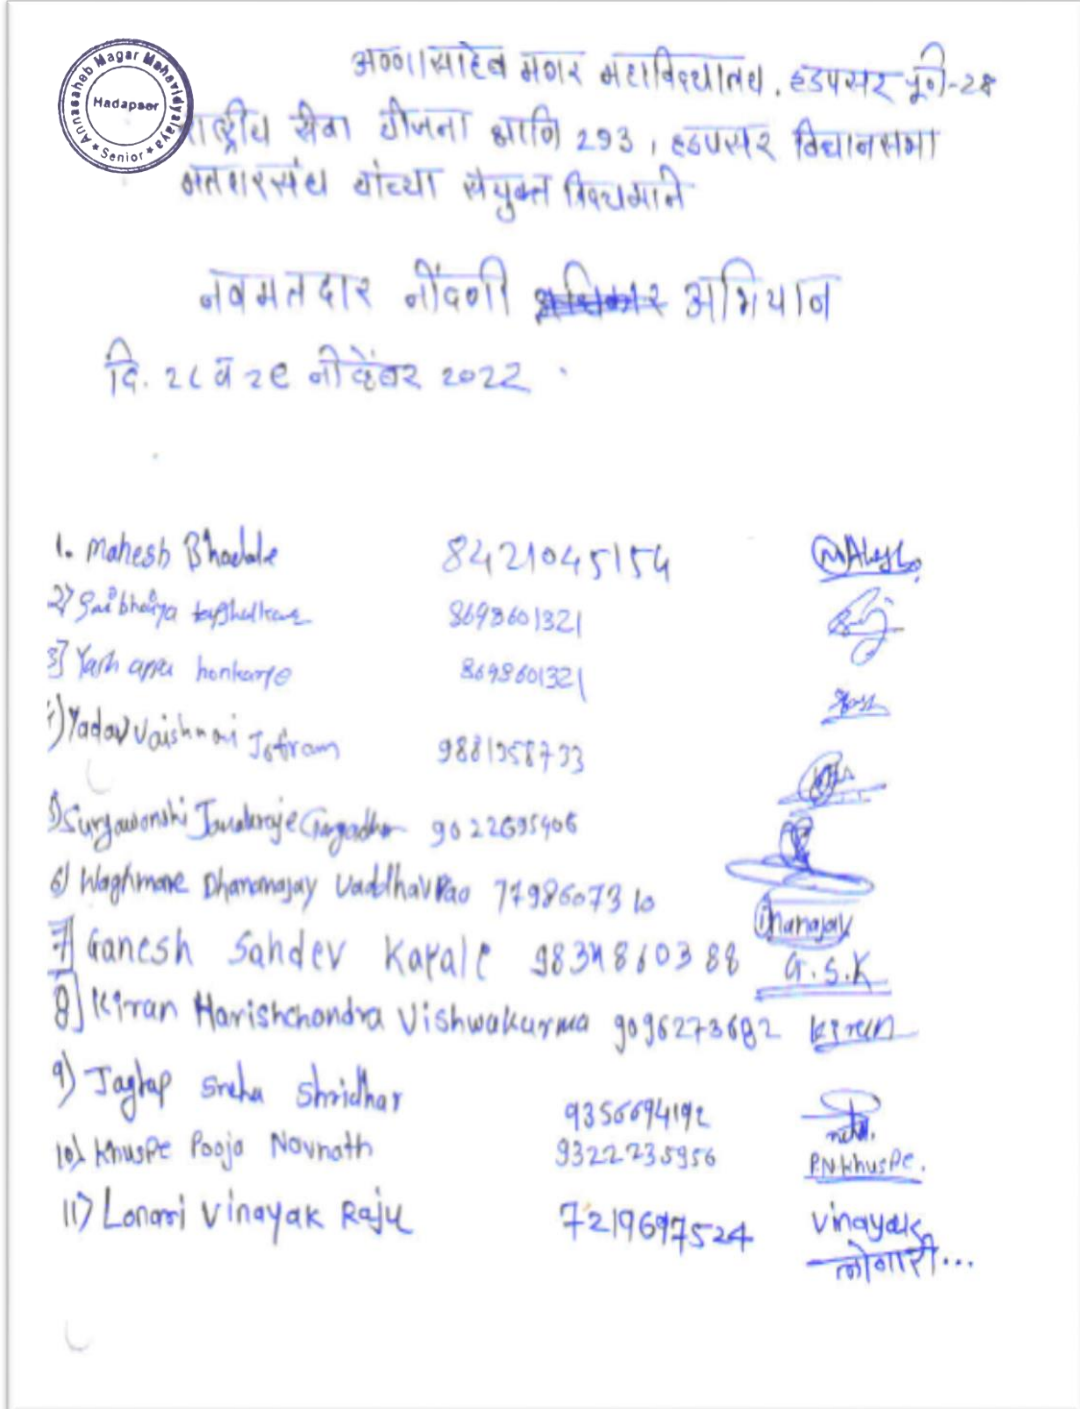 Annasaheb Magar Mahavidyalaya
Hadapsar
★ Senior ★
अण्णासाहेब मगर महाविद्यालय, हडपसर पुणे-28
राष्ट्रीय सेवा योजना आणि 293, हडपसर विधानसभा
मतदारसंघ यांच्या संयुक्त विद्यमाने
नवमतदार नोंदणी अभियान
दि. २८ व २९ नोव्हेंबर २०२२
1. Mahesh Bhadale 8421045154
2) Saibhaiya 8698601321
3] Yash appa honkarje 8698601321
4) Yadav Vaishnavi Jotiram 9881358733
5) Suryawanshi Gangadhar 9022695406
6) Waghmare Dhananajay Uaddhav Rao 7798607310 Dhanajay
7] Ganesh Sahdev Karale 9834860388 G.S.K
8] Kiran Harishchandra Vishwakarma 9096273682 Kiran
9) Jagtap Sneha Shridhar 9356694192
10) Khuspe Pooja Navnath 9322235956 P.N.Khuspe.
11) Lonari Vinayak Raju 7219697524 Vinayak
लोणारी...